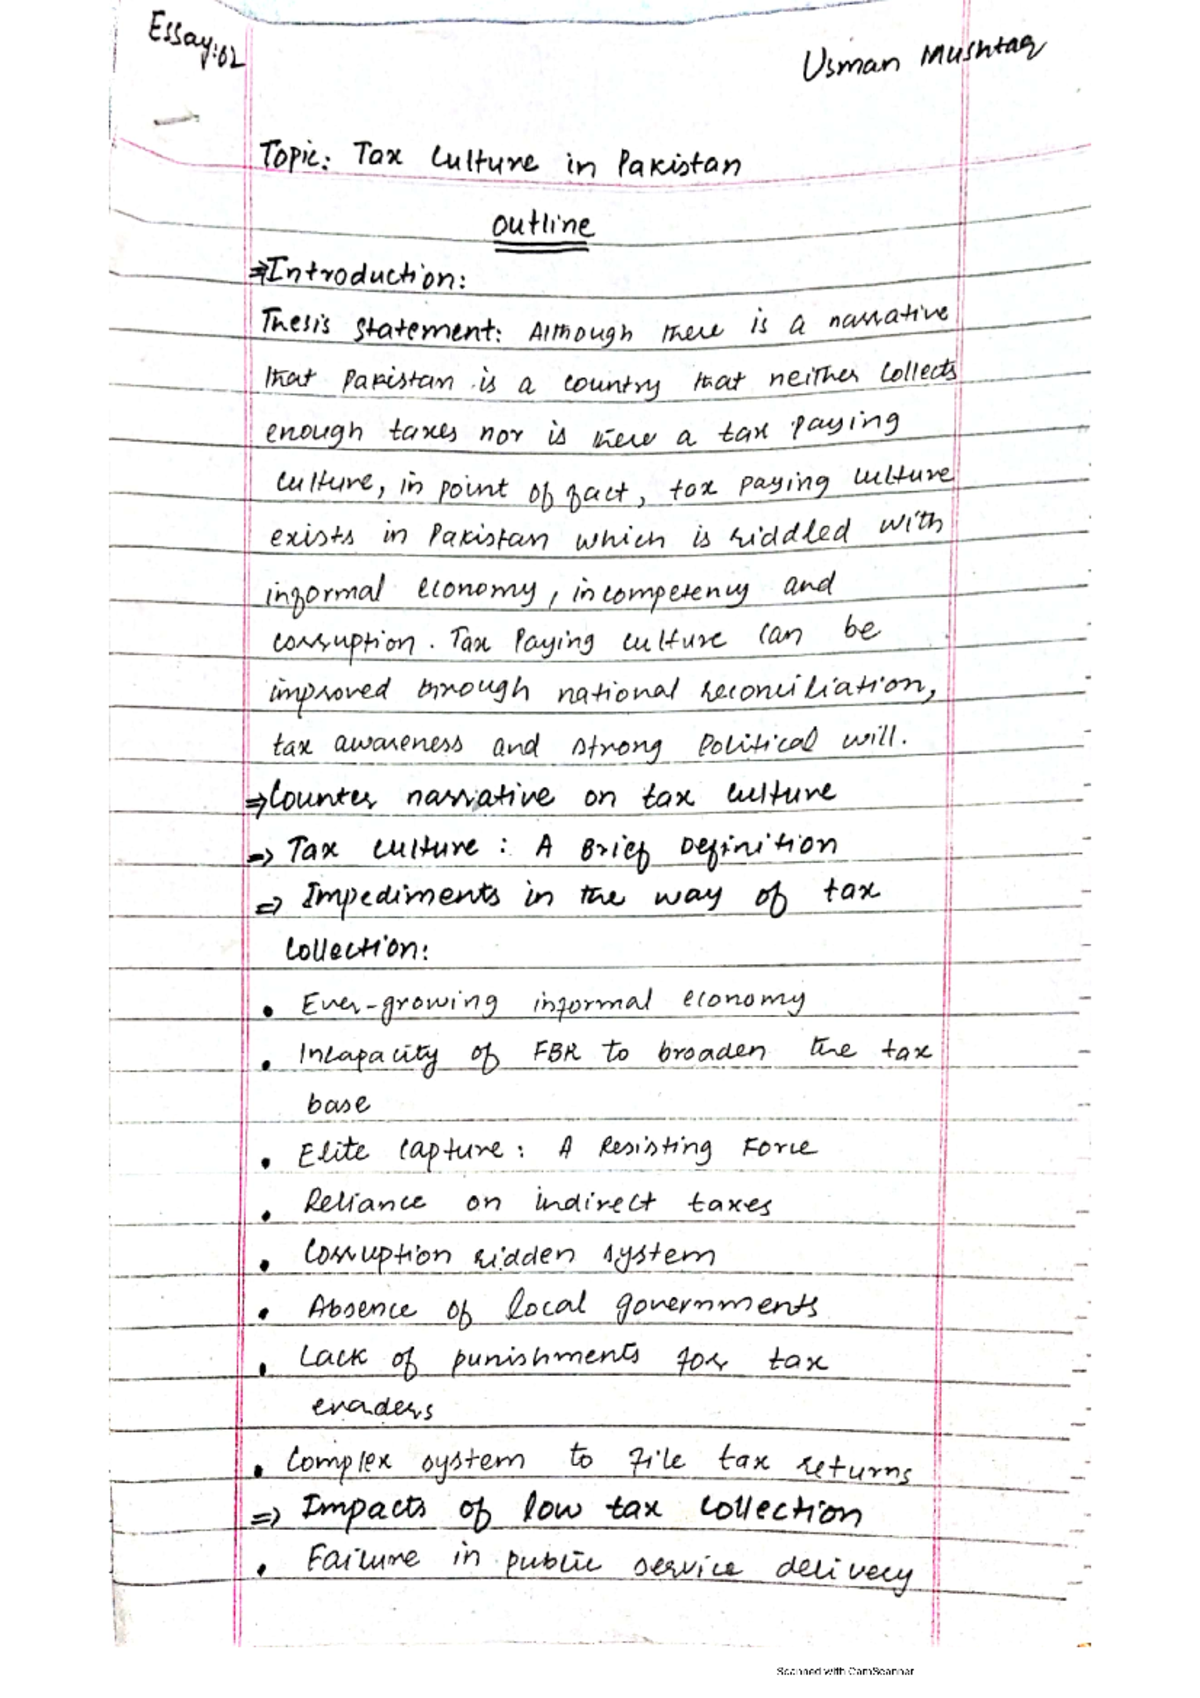 Essay:02
Usman Mushtaq
Topic: Tax Culture in Pakistan
Outline
⇒Introduction:
Thesis Statement: Although there is a narrative
that Pakistan is a country that neither collects
enough taxes nor is there a tax paying
culture, in point of fact, tax paying culture
exists in Pakistan which is riddled with
informal economy, incompetency and
corruption. Tax Paying culture can be
improved through national reconciliation,
tax awareness and strong Political will.
⇒Counter narrative on tax culture
⇒ Tax culture : A Brief Definition
⇒ Impediments in the way of tax
Collection:
• Ever-growing informal economy
• Incapacity of FBR to broaden the tax
base
• Elite Capture: A Resisting Force
• Reliance on indirect taxes
• Corruption ridden system
• Absence of local governments
• Lack of punishments for tax
evaders
• Complex system to file tax returns
⇒ Impacts of low tax collection
• Failure in public service delivery
Scanned with CamScanner